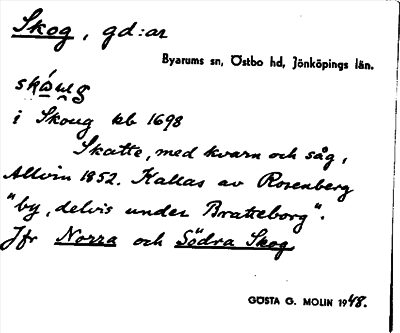 Skog, gd:ar
Byarums sn, Östbo hd, Jönköpings län.
i Skoug kb 1698
Skatte, med kvarn och såg,
Allvin 1852. Kallas av Rosenberg
"by, delvis under Bratteborg".
Jfr Norra och Södra Skog
GÖSTA G. MOLIN 1948.